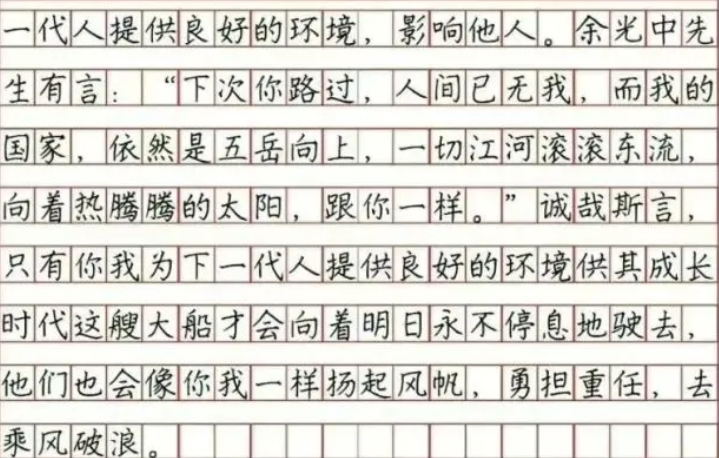 一代人提供良好的环境，影响他人。余光中先
生有言：“下次你路过，人间已无我，而我的
国家，依然是五岳向上，一切江河滚滚东流，
向着热腾腾的太阳，跟你一样。”诚哉斯言，
只有你我为下一代人提供良好的环境供其成长
时代这艘大船才会向着明日永不停息地驶去，
他们也会像你我一样扬起风帆，勇担重任，去
乘风破浪。